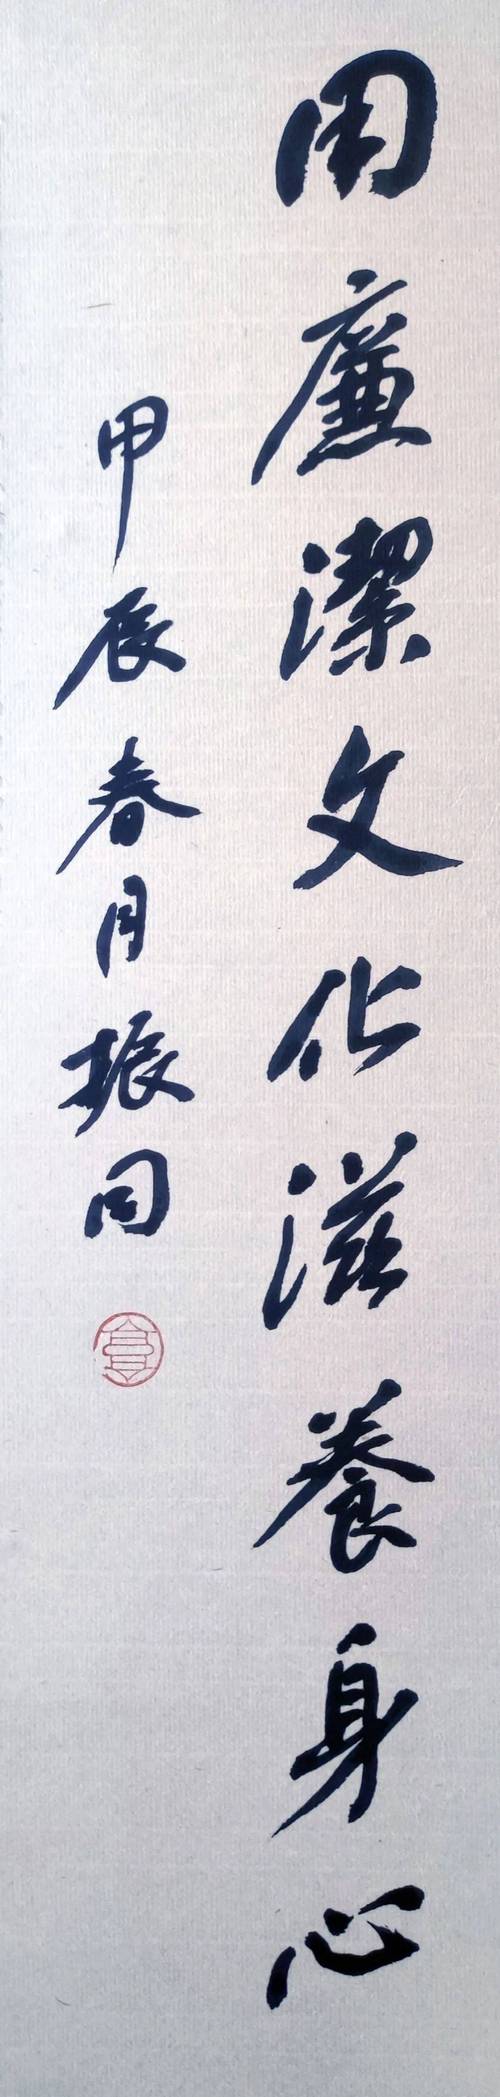 用廉潔文化滋養身心
甲辰春月振同